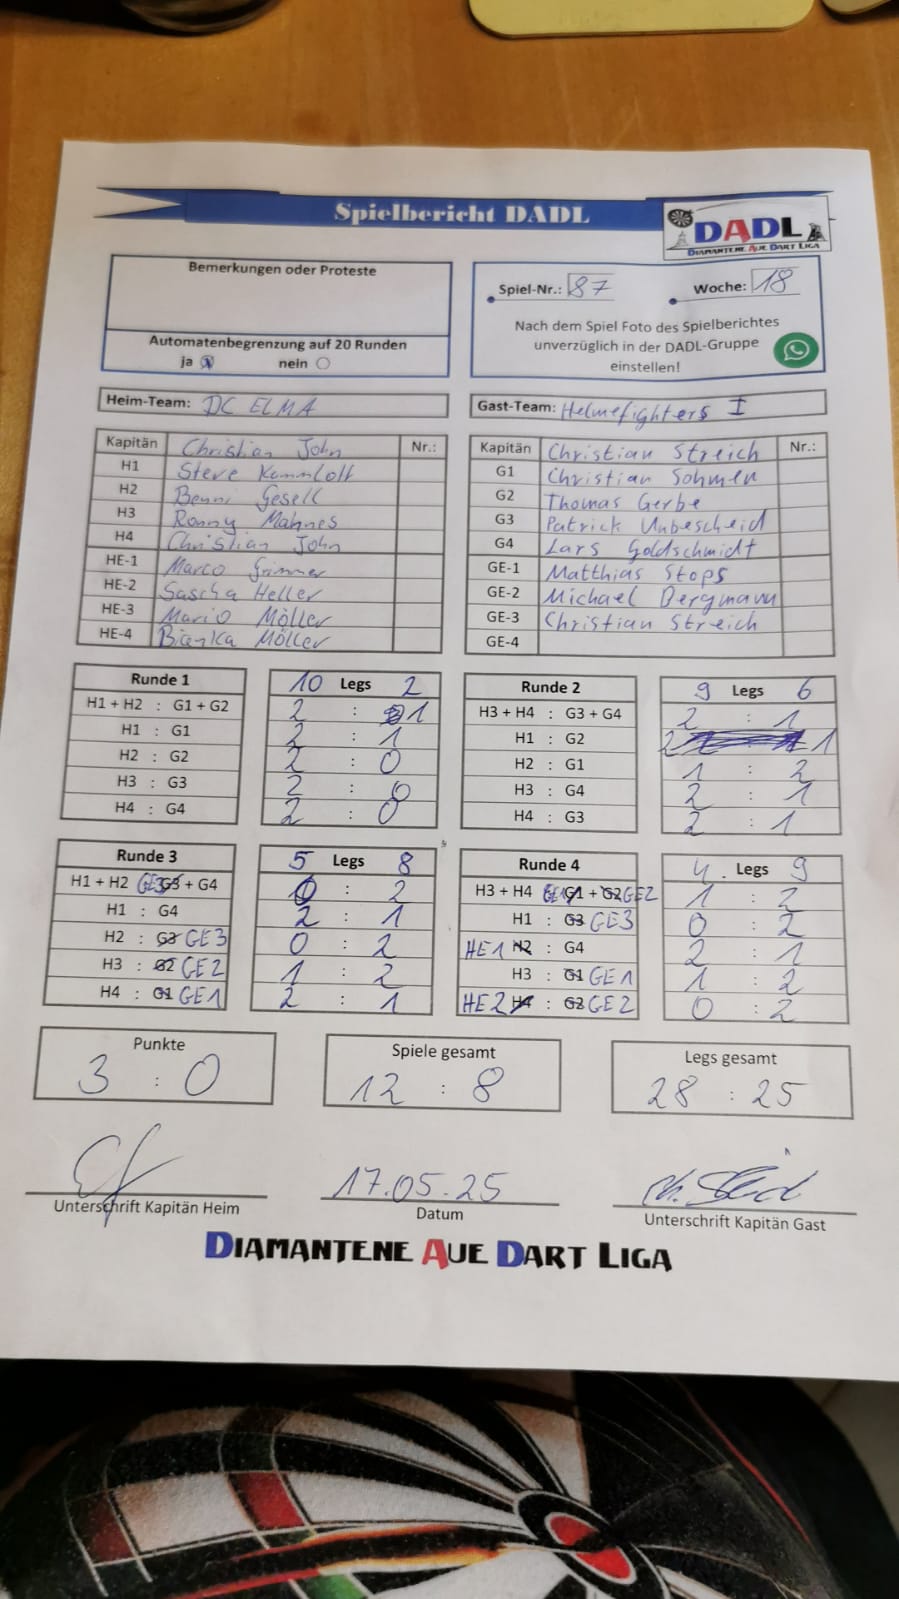 Spielbericht DADL
DADL
DIAMANTENE AUE DART LIGA
Bemerkungen oder Proteste
Automatenbegrenzung auf 20 Runden
ja nein
Spiel-Nr.: 87 Woche: 18
Nach dem Spiel Foto des Spielberichtes
unverzüglich in der DADL-Gruppe
einstellen!
Heim-Team: DC ELMA
Kapitän Christian John Nr.:
H1 Steve Kammlott
H2 Benni Gesell
H3 Ronny Mahnes
H4 Christian John
HE-1 Marco Grimmer
HE-2 Sascha Heller
HE-3 Mario Möller
HE-4 Bianka Möller
Gast-Team: Helmefighters I
Kapitän Christian Streich Nr.:
G1 Christian Sohmen
G2 Thomas Gerbe
G3 Patrick Unbescheid
G4 Lars Goldschmidt
GE-1 Matthias Stops
GE-2 Michael Bergmann
GE-3 Christian Streich
GE-4
Runde 1 10 Legs 2
H1 + H2 : G1 + G2 2 : 1
H1 : G1 2 : 1
H2 : G2 2 : 0
H3 : G3 2 : 0
H4 : G4 2 : 0
Runde 2 9 Legs 6
H3 + H4 : G3 + G4 2 : 1
H1 : G2 2 1
H2 : G1 1 : 2
H3 : G4 2 : 1
H4 : G3 2 : 1
Runde 3 5 Legs 8
H1 + H2 GE3 G3 + G4 0 : 2
H1 : G4 2 : 1
H2 : G3 GE3 0 : 2
H3 : G2 GE2 1 : 2
H4 : G1 GE1 2 : 1
Runde 4 4 Legs 9
H3 + H4 GE1 G1 + G2 GE2 1 : 2
H1 : G3 GE3 0 : 2
HE1 H2 : G4 2 : 1
H3 : G1 GE1 1 : 2
HE2 H4 : G2 GE2 0 : 2
Punkte
3 : 0
Spiele gesamt
12 : 8
Legs gesamt
28 : 25
Unterschrift Kapitän Heim
17.05.25
Datum
Unterschrift Kapitän Gast
DIAMANTENE AUE DART LIGA